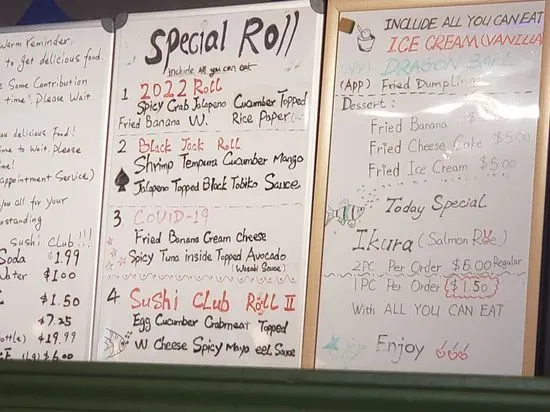 Warm Reminder,
to get delicious food.
Some Contribution
time" Please Wait
you delicious Food!
time to Wait. Please
time!
appointment Service)
you all for your
Sushi Club!!!
Soda $1.99
Water $1.00
$1.50
$7.25
$19.99
(Lg) $6.00
Special Roll
include all you can eat
1 2022 Roll
Spicy Crab Jalapeno Cucumber Topped
Fried Banana W. Rice Paper
2 Black Jack Roll
Shrimp Tempura Cucumber Mango
Jalapeno Topped Black Tobiko Sauce
3 COVID-19
Fried Banana Cream Cheese
Spicy Tuna inside Topped Avocado
(Wasabi Sauce)
4 Sushi Club Roll II
Egg Cucumber Crabmeat Topped
W Cheese Spicy Mayo eel Sauce
INCLUDE ALL YOU CAN EAT
ICE CREAM (VANILLA
DRAGON BALL
(App) Fried Dumpling
Dessert:
Fried Banana $
Fried Cheese Cake $5.00
Fried Ice Cream $5.00
Today Special
Ikura (Salmon Roe)
2PC Per Order $6.00 Regular
1PC Per Order $1.50
With ALL YOU CAN EAT
Enjoy